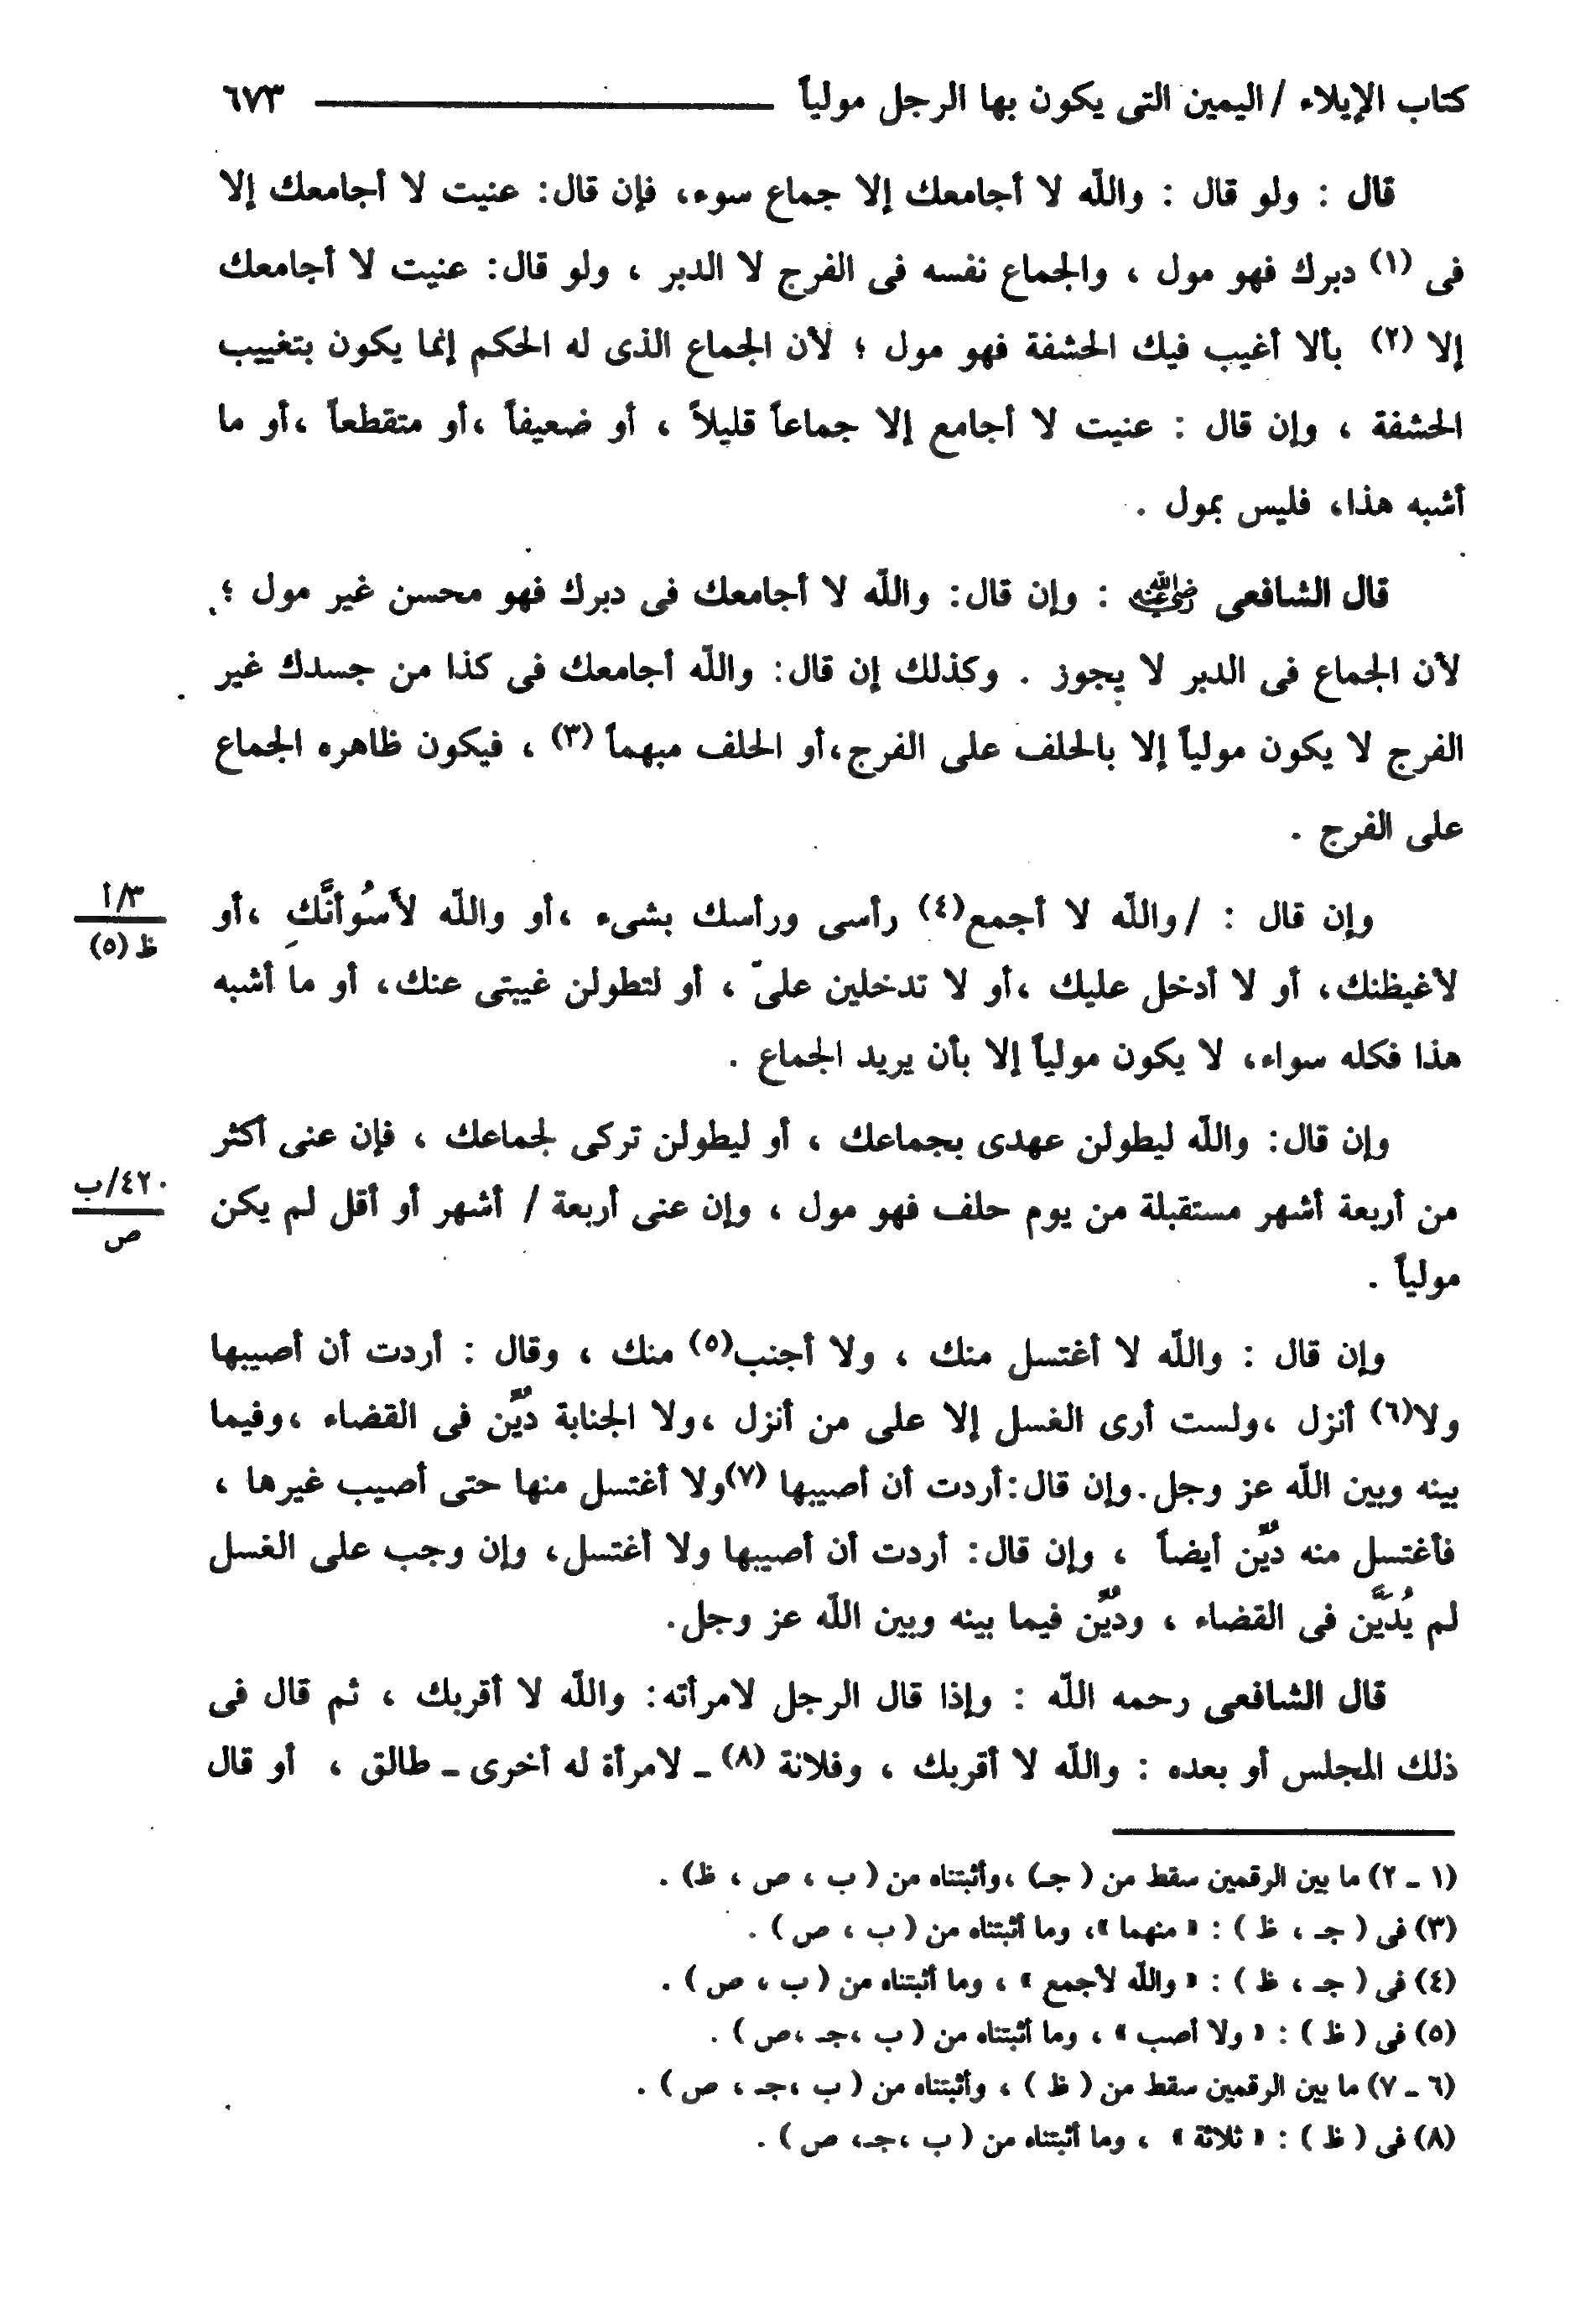 كتاب الإيلاء / اليمين التى يكون بها الرجل مولياً ٦٧٣
قال : ولو قال : واللّه لا أجامعك إلا جماع سوء، فإن قال: عنيت لا أجامعك إلا
فى (١) دبرك فهو مول ، والجماع نفسه فى الفرج لا الدبر ، ولو قال: عنيت لا أجامعك
إلا (٢) بألا أغيب فيك الحشفة فهو مول ؛ لأن الجماع الذى له الحكم إنما يكون بتغييب
الحشفة ، وإن قال : عنيت لا أجامع إلا جماعاً قليلاً ، أو ضعيفاً ،أو متقطعاً ،أو ما
أشبه هذا، فليس بمول .
قال الشافعى رضي الله عنه : وإن قال: واللّه لا أجامعك فى دبرك فهو محسن غير مول ؛
لأن الجماع فى الدبر لا يجوز . وكذلك إن قال: واللّه أجامعك فى كذا من جسدك غير
الفرج لا يكون مولياً إلا بالحلف على الفرج،أو الحلف مبهماً (٣) ، فيكون ظاهره الجماع
على الفرج .
وإن قال : /واللّه لا أجمع(٤) رأسى ورأسك بشىء ،أو واللّه لأَسُوأنَّكِ ،أو
٣/أ
ظ (٥)
لأغيظنك، أو لا أدخل عليك ،أو لا تدخلين علىّ ، أو لتطولن غيبتى عنك، أو ما أشبه
هذا فكله سواء، لا يكون مولياً إلا بأن يريد الجماع .
وإن قال: واللّه ليطولن عهدى بجماعك ، أو ليطولن تركى لجماعك ، فإن عنى أكثر
٤٢٠/ب
ص
من أربعة أشهر مستقبلة من يوم حلف فهو مول ، وإن عنى أربعة / أشهر أو أقل لم يكن
مولياً .
وإن قال : واللّه لا أغتسل منك ، ولا أجنب(٥) منك ، وقال : أردت أن أصيبها
ولا(٦) أنزل ،ولست أرى الغسل إلا على من أنزل ،ولا الجنابة دُيِّن فى القضاء ،وفيما
بينه وبين اللّه عز وجل.وإن قال:أردت أن أصيبها (٧)ولا أغتسل منها حتى أصيب غيرها ،
فأغتسل منه دُيِّن أيضاً ، وإن قال: أردت أن أصيبها ولا أغتسل، وإن وجب على الغسل
لم يُدَيَّن فى القضاء ، ودُيِّن فيما بينه وبين اللّه عز وجل.
قال الشافعى رحمه اللّه : وإذا قال الرجل لامرأته: واللّه لا أقربك ، ثم قال فى
ذلك المجلس أو بعده : واللّه لا أقربك ، وفلانة (٨) ـ لامرأة له أخرى ـ طالق ، أو قال
(١ ـ ٢) ما بين الرقمين سقط من ( جـ) ،وأثبتناه من ( ب ، ص ، ظ) .
(٣) فى ( جـ ، ظ ) : « منهما »، وما أثبتناه من ( ب ، ص ) .
(٤) فى ( جـ ، ظ ) : « واللّه لأجمع » ، وما أثبتناه من ( ب ، ص ) .
(٥) فى ( ظ ) : « ولا أصب » ، وما أثبتناه من ( ب ،جـ ،ص ) .
(٦ ـ ٧) ما بين الرقمين سقط من ( ظ ) ، وأثبتناه من ( ب ،جـ ، ص ) .
(٨) فى ( ظ ) : « ثلاثة » ، وما أثبتناه من ( ب ،جـ، ص ) .